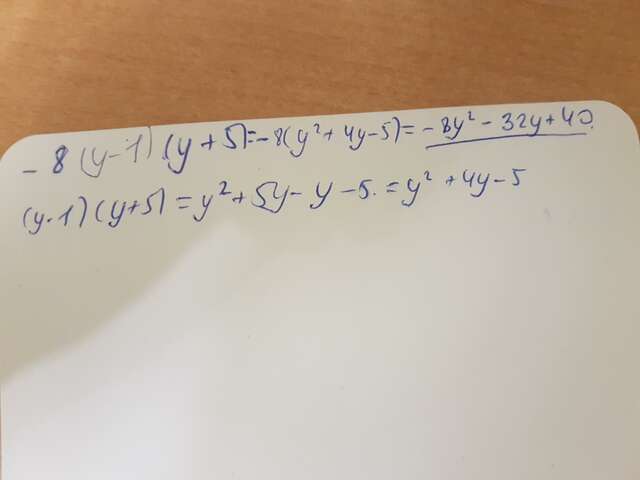 - 8 (y - 1) (y + 5) = - 8(y² + 4y - 5) = - 8y² - 32y + 40.
(y - 1) (y + 5) = y² + 5y - y - 5. = y² + 4y - 5